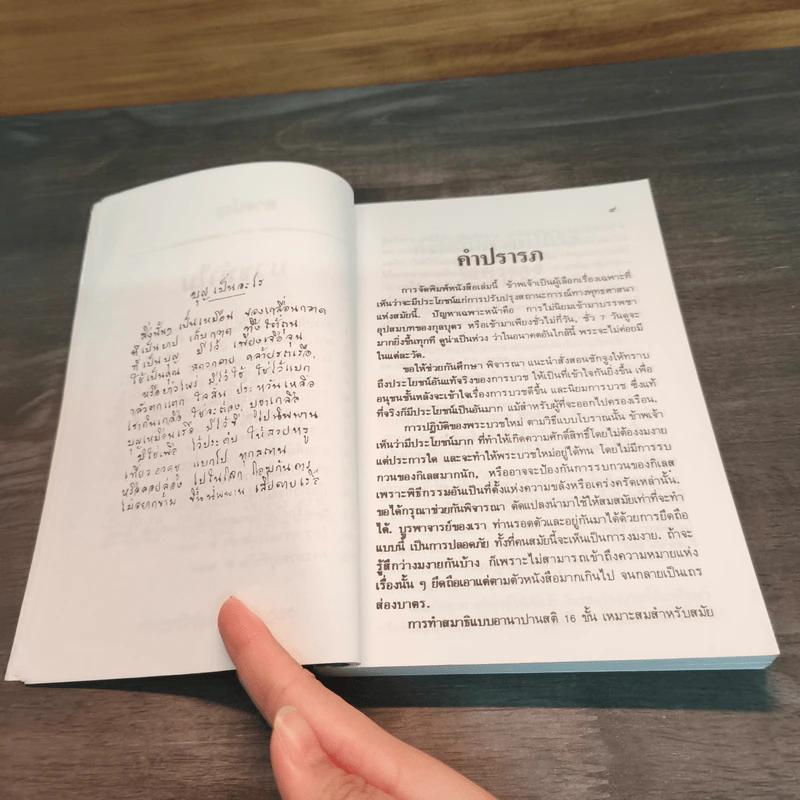 บุญเป็นอะไร
สิ่งนั้นๆ เป็นเหมือน ของเกลื่อนกลาด
ที่เป็นบาป เก็บกวาด ทิ้งใต้ถุน
ที่เป็นบุญ มีไว้ เพียงเจือจุน
ใช้เป็นคุณ สะดวกดาย คล้ายรถเรือ.
หรือบ่าวไพร่ มีไว้ใช้ ใช่ไว้แบก
กลัวตกแตก ใจสั่น ประหวั่นเหลือ
เรากินเกลือ ใช่จะต้อง บูชาเกลือ
บุญเหมือนเรือ มีไว้ขี่ ไปนิพพาน
มิใช่เพื่อ ไว้ประดับ ให้สวยหรู
เที่ยวอวดชู แบกไป ทุกสถาน
หรือลอยล่อง ไปในโลก โอฆกันดาร
ไม่อยากข้าม ขึ้นนิพพาน เสียดายเรือ
๙
คำปรารภ
การจัดพิมพ์หนังสือเล่มนี้ ข้าพเจ้าเป็นผู้เลือกเรื่องเฉพาะที่
เห็นว่าจะมีประโยชน์แก่การปรับปรุงสถานะการณ์ทางพุทธศาสนา
แห่งสมัยนี้. ปัญหาเฉพาะหน้าคือ การไม่นิยมเข้ามาบรรพชา
อุปสมบทของกุลบุตร หรือเข้ามาเพียงชั่วไม่กี่วัน, ชั่ว 7 วันดูจะ
มากยิ่งขึ้นทุกที ดูน่าเป็นห่วง ว่าในอนาคตอันใกล้นี้ พระจะไม่ค่อยมี
ในแต่ละวัด.
ขอให้ช่วยกันศึกษา พิจารณา แนะนำสั่งสอนชักจูงให้ทราบ
ถึงประโยชน์อันแท้จริงของการบวช ให้เป็นที่เข้าใจกันยิ่งขึ้น เพื่อ
อนุชนชั้นหลังจะเข้าใจเรื่องการบวชดีขึ้น และนิยมการบวช ซึ่งแท้
ที่จริงก็มีประโยชน์เป็นอันมาก แม้สำหรับผู้ที่จะออกไปครองเรือน.
การปฏิบัติของพระบวชใหม่ ตามวิธีแบบโบราณนั้น ข้าพเจ้า
เห็นว่ามีประโยชน์มาก ที่ทำให้เกิดความศักดิ์สิทธิ์โดยไม่ต้องงมงาย
แต่ประการใด และจะทำให้พระบวชใหม่อยู่ได้ทน โดยไม่มีการรบ
กวนของกิเลสมากนัก, หรืออาจจะป้องกันการรบกวนของกิเลส
เพราะพิธีกรรมอันเป็นที่ตั้งแห่งความขลังหรือเคร่งครัดเหล่านั้น.
ขอได้กรุณาช่วยกันพิจารณา ดัดแปลงนำมาใช้ให้สมสมัยเท่าที่จะทำ
ได้. บูรพาจารย์ของเรา ท่านรอดตัวและอยู่กันมาได้ด้วยการยึดถือ
แบบนี้ เป็นการปลอดภัย ทั้งที่คนสมัยนี้จะเห็นเป็นการงมงาย. ถ้าจะ
รู้สึกว่างมงายกันบ้าง ก็เพราะไม่สามารถเข้าถึงความหมายแห่ง
เรื่องนั้น ๆ ยึดถือเอาแต่ตามตัวหนังสือมากเกินไป จนกลายเป็นเถร
ส่องบาตร.
การทำสมาธิแบบอานาปานสติ 16 ขั้น เหมาะสมสำหรับสมัย